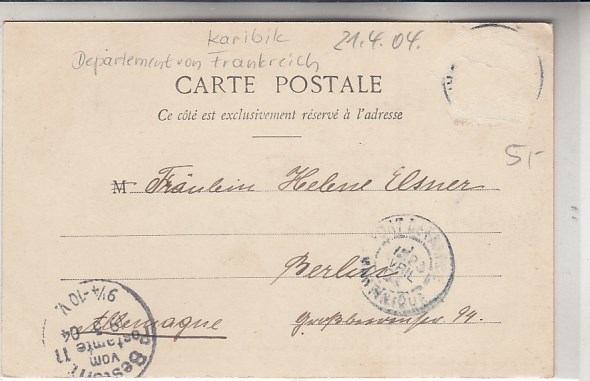 Karibik 21.4.04.
Departement von Frankreich
CARTE POSTALE
Ce côté est exclusivement réservé à l'adresse
5,-
M Fräulein Helene Elsner
FORT DE FRANCE
AVRIL
MARTINIQUE
Berlin
Allemagne Großbeerenstr. 94.
Bestellt
vom
Postamte 11
04
9¼-10V.